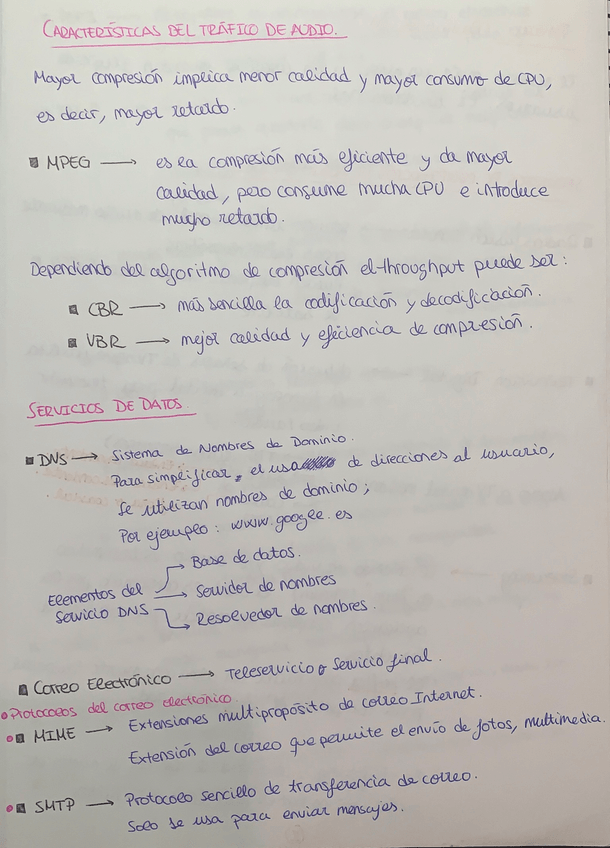 CARACTERÍSTICAS DEL TRÁFICO DE AUDIO.
Mayor compresión implica menor calidad y mayor consumo de CPU,
es decir, mayor retardo.
▪ MPEG → es la compresión más eficiente y da mayor
calidad, pero consume mucha CPU e introduce
mucho retardo.
Dependiendo del algoritmo de compresión el throughput puede ser:
▪ CBR → más sencilla la codificación y decodificación.
▪ VBR → mejor calidad y eficiencia de compresión.
SERVICIOS DE DATOS.
▪ DNS → Sistema de Nombres de Dominio.
Para simplificar, el uso de direcciones al usuario,
se utilizan nombres de dominio;
Por ejemplo: www.google.es
Elementos del Servicio DNS
→ Base de datos.
→ Servidor de nombres
→ Resolvedor de nombres.
▪ Correo Electrónico → Teleservicio o Servicio final.
• Protocolos del correo electrónico.
• ▪ MIME → Extensiones multipropósito de correo Internet.
Extensión del correo que permite el envío de fotos, multimedia.
• ▪ SMTP → Protocolo sencillo de transferencia de correo.
Solo se usa para enviar mensajes.